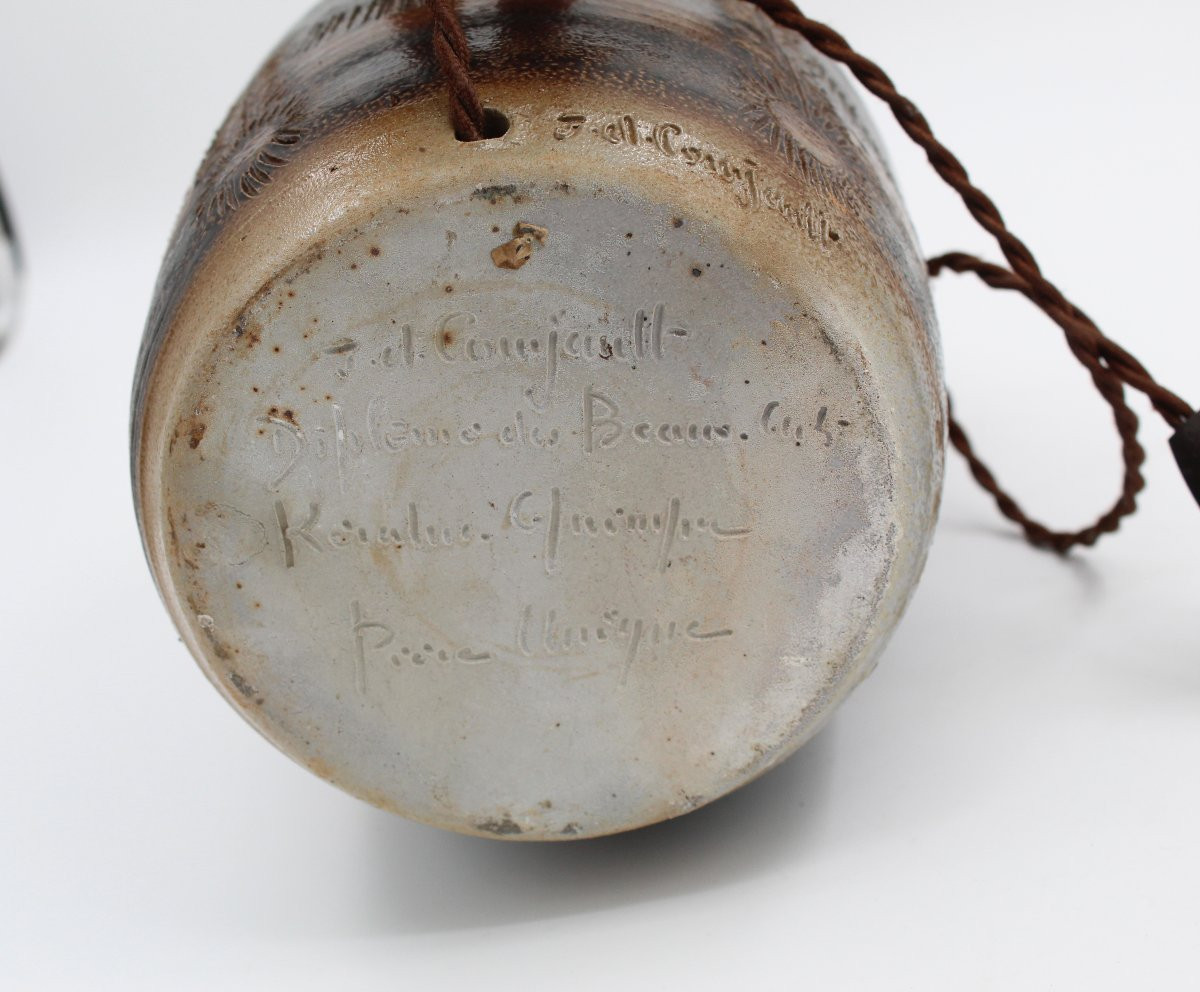 J. d. Courjault
J. d. Courjault
Diplômé des Beaux. Arts
Keraluc. Quimper
Pièce Unique